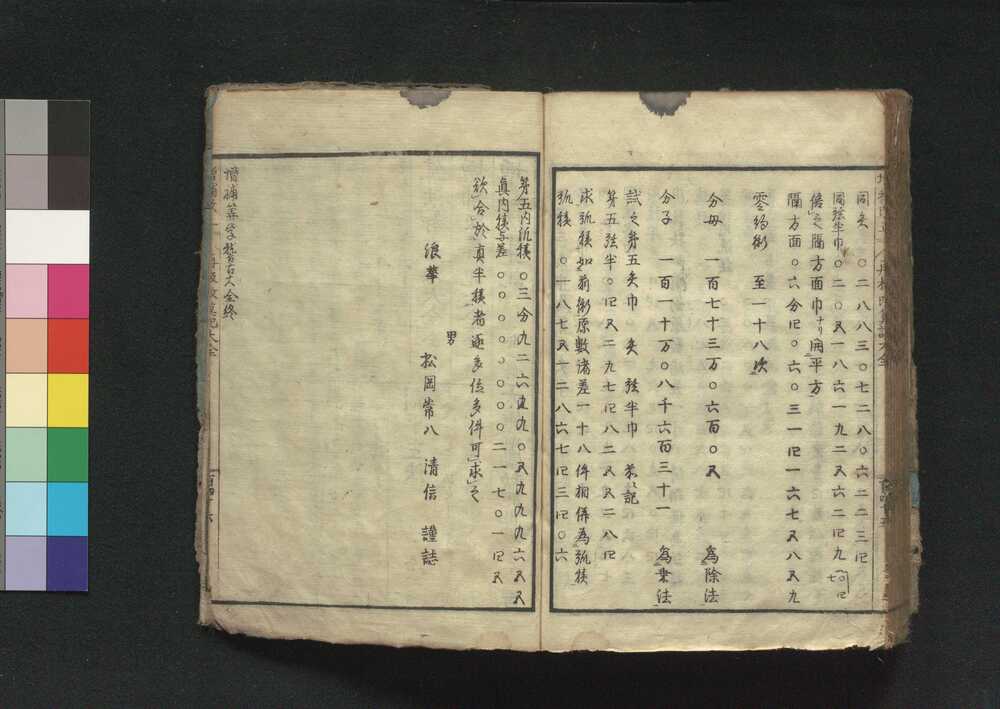 同矢 〇二八八三〇七二八〇六二二三四
同弦半巾〇二〇五一八六一九二五六二四九
傍之隅方面巾ナリ開平方
隅方面〇六分四〇六〇三一四一六七五八五九
零約術 至一十八次
分母 一百七十三万〇六百〇五 為除法
分子 一百一十万〇八千六百三十一 為乗法
試之第五矢巾 矢 弦半巾 恭記
第五弦半〇四五二九七四八二五五二八四
求弧積如前術原數諸差一十八件相併為弧積
弧積 〇一八七五一二八六七四三〇六
第五内弧積〇三分九二六九九〇五九九九六五五
真内積与差〇〇〇〇〇〇〇〇二一七〇一四五
欲合於真半積者逐多位多件可求之
浪華 松岡常八 清信 謹誌
男
增補算学稽古大全終